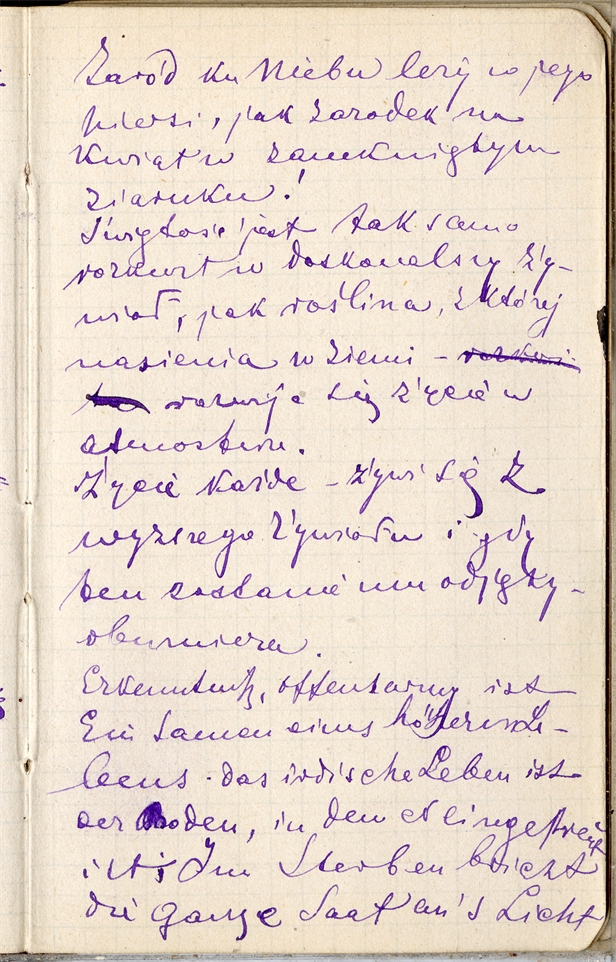 Zaród ku Niebu leży w jego
piersi, jak zarodek na
Kwiat w zamkniętym
ziarnku!
Świętość jest tak samo
rozkwit w doskonalszy ży-
wioł, jak roślina, z której
nasienia w ziemi –
rozwija się życie w
atmosferu.
Życie każde – żywi się z
wyższego żywiołu i gdy
ten zostanie mu odjęty –
obumiera.
Erkenntniß, offenbarung ist
Ein Samen eines höheren Le-
bens. das irdische Leben ist
der Boden, in dem es eingestreut
ist; Im Sterben bricht
die ganze Saat an's Licht